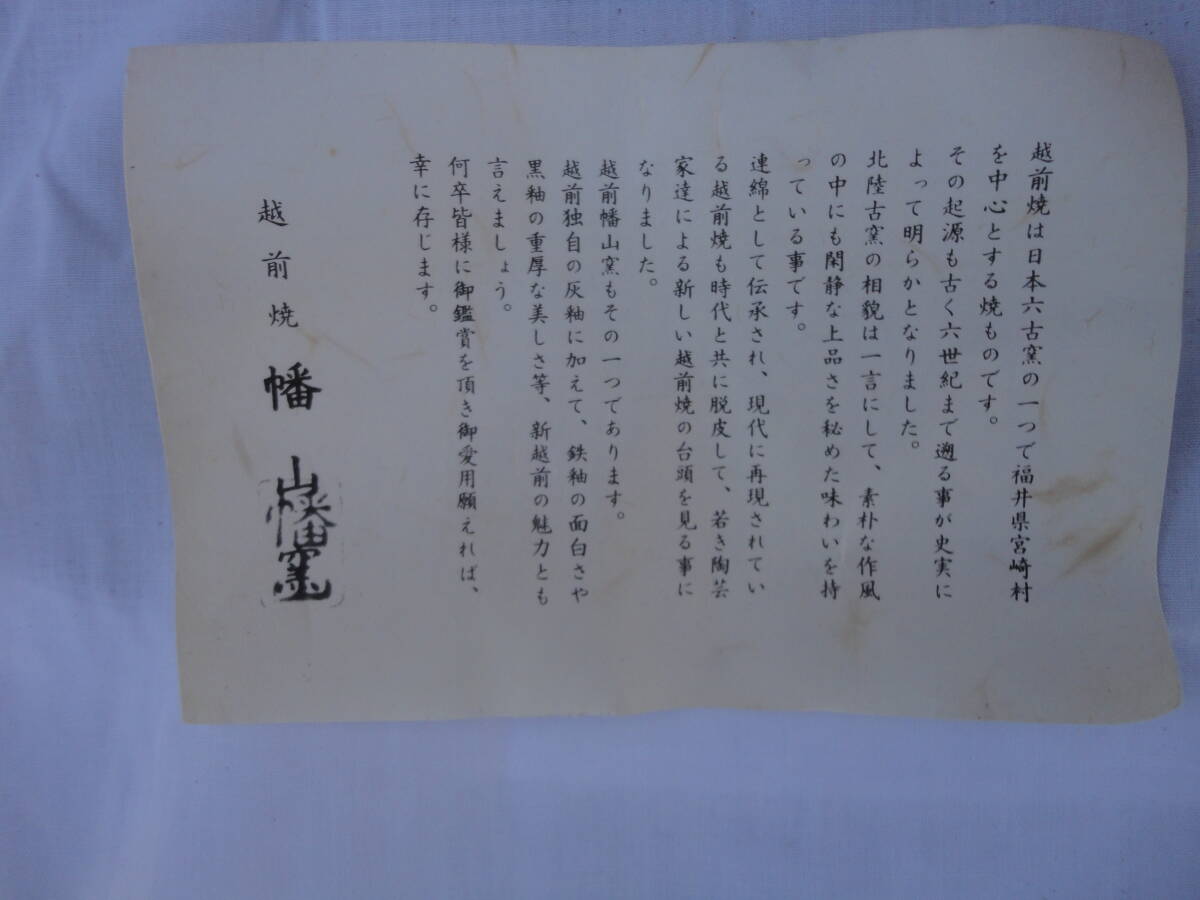 越前焼は日本六古窯の一つで福井県宮崎村
を中心とする焼ものです。
その起源も古く六世紀まで遡る事が史実に
よって明らかとなりました。
北陸古窯の相貌は一言にして、素朴な作風
の中にも閑静な上品さを秘めた味わいを持
っている事です。
連綿として伝承され、現代に再現されてい
る越前焼も時代と共に脱皮して、若き陶芸
家達による新しい越前焼の台頭を見る事に
なりました。
越前幡山窯もその一つであります。
越前独自の灰釉に加えて、鉄釉の面白さや
黒釉の重厚な美しさ等、新越前の魅力とも
言えましょう。
何卒皆様に御鑑賞を頂き御愛用願えれば、
幸に存じます。
越前焼 幡山窯